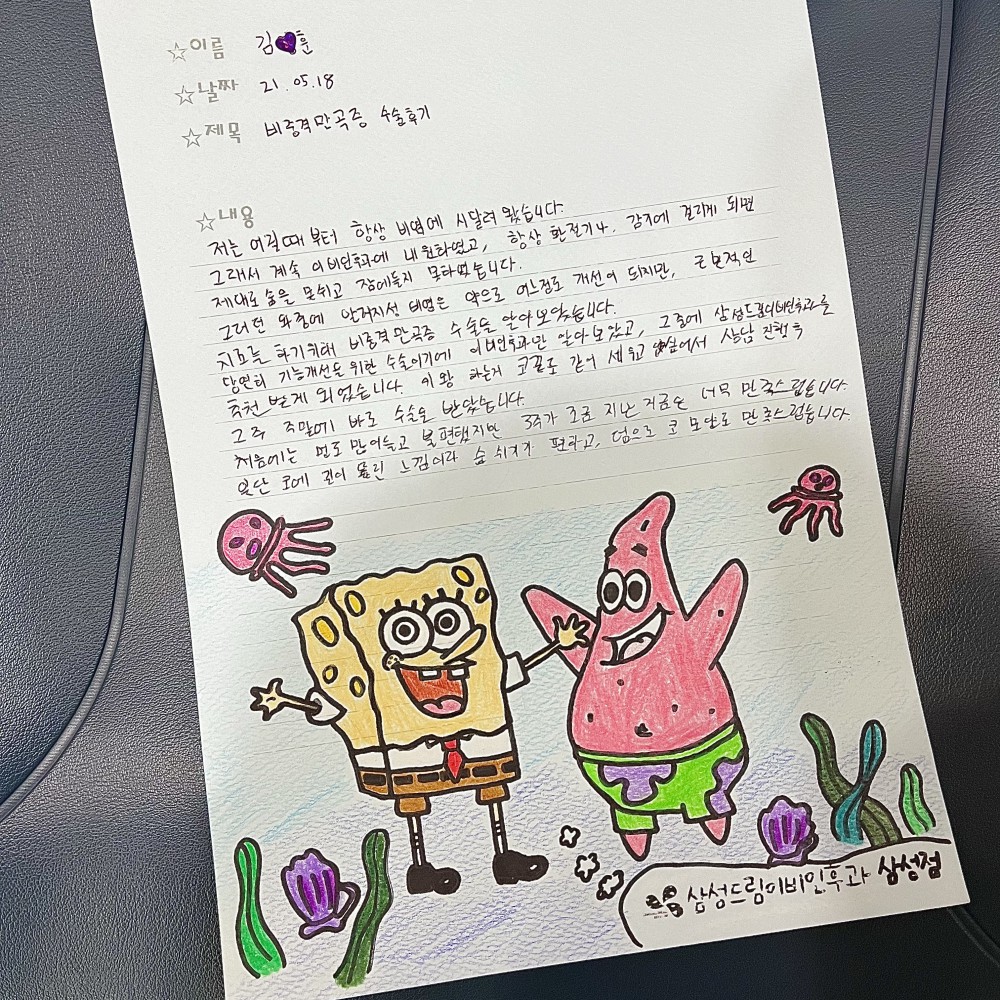 ☆이름 김💜훈
☆날짜 21.05.18
☆제목 비중격만곡증 수술후기
☆내용
저는 어릴때부터 항상 비염에 시달려 왔습니다.
그래서 계속 이비인후과에 내원하였고, 항상 환절기나, 감기에 걸리게 되면
제대로 숨을 못쉬고 잠에들지 못하였습니다.
그러던 와중에 알레지성 비염은 약으로 어느정도 개선이 되지만, 근본적인
치료를 하기위해 비중격만곡증 수술을 알아보았습니다.
당연히 기능개선을 위한 수술이기에 이비인후과만 알아보았고, 그중에 삼성드림이비인후과를
추천 받게 되었습니다. 이왕 하는거 코끝도 같이 세우고 싶어서 상담 진행 후
그 주 주말에 바로 수술을 받았습니다.
처음에는 멍도 많이들고 불편했지만 3주가 조금 지난 지금은 너무 만족스럽습니다.
일단 코에 길이 뚫린 느낌이라 숨 쉬기가 편하고, 덤으로 코 모양도 만족스럽습니다.
삼성드림이비인후과 삼성점